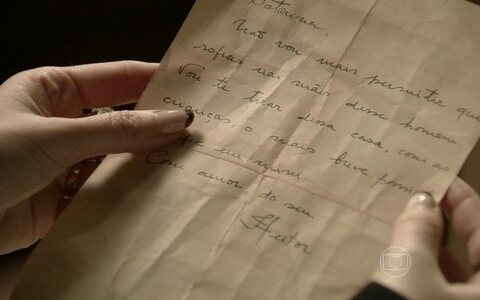 Não vou mais permitir que
sofras nas mãos desse homem
Vou te tirar dessa casa, com as
crianças, o mais breve
em mim.
Com amor do seu
Heitor